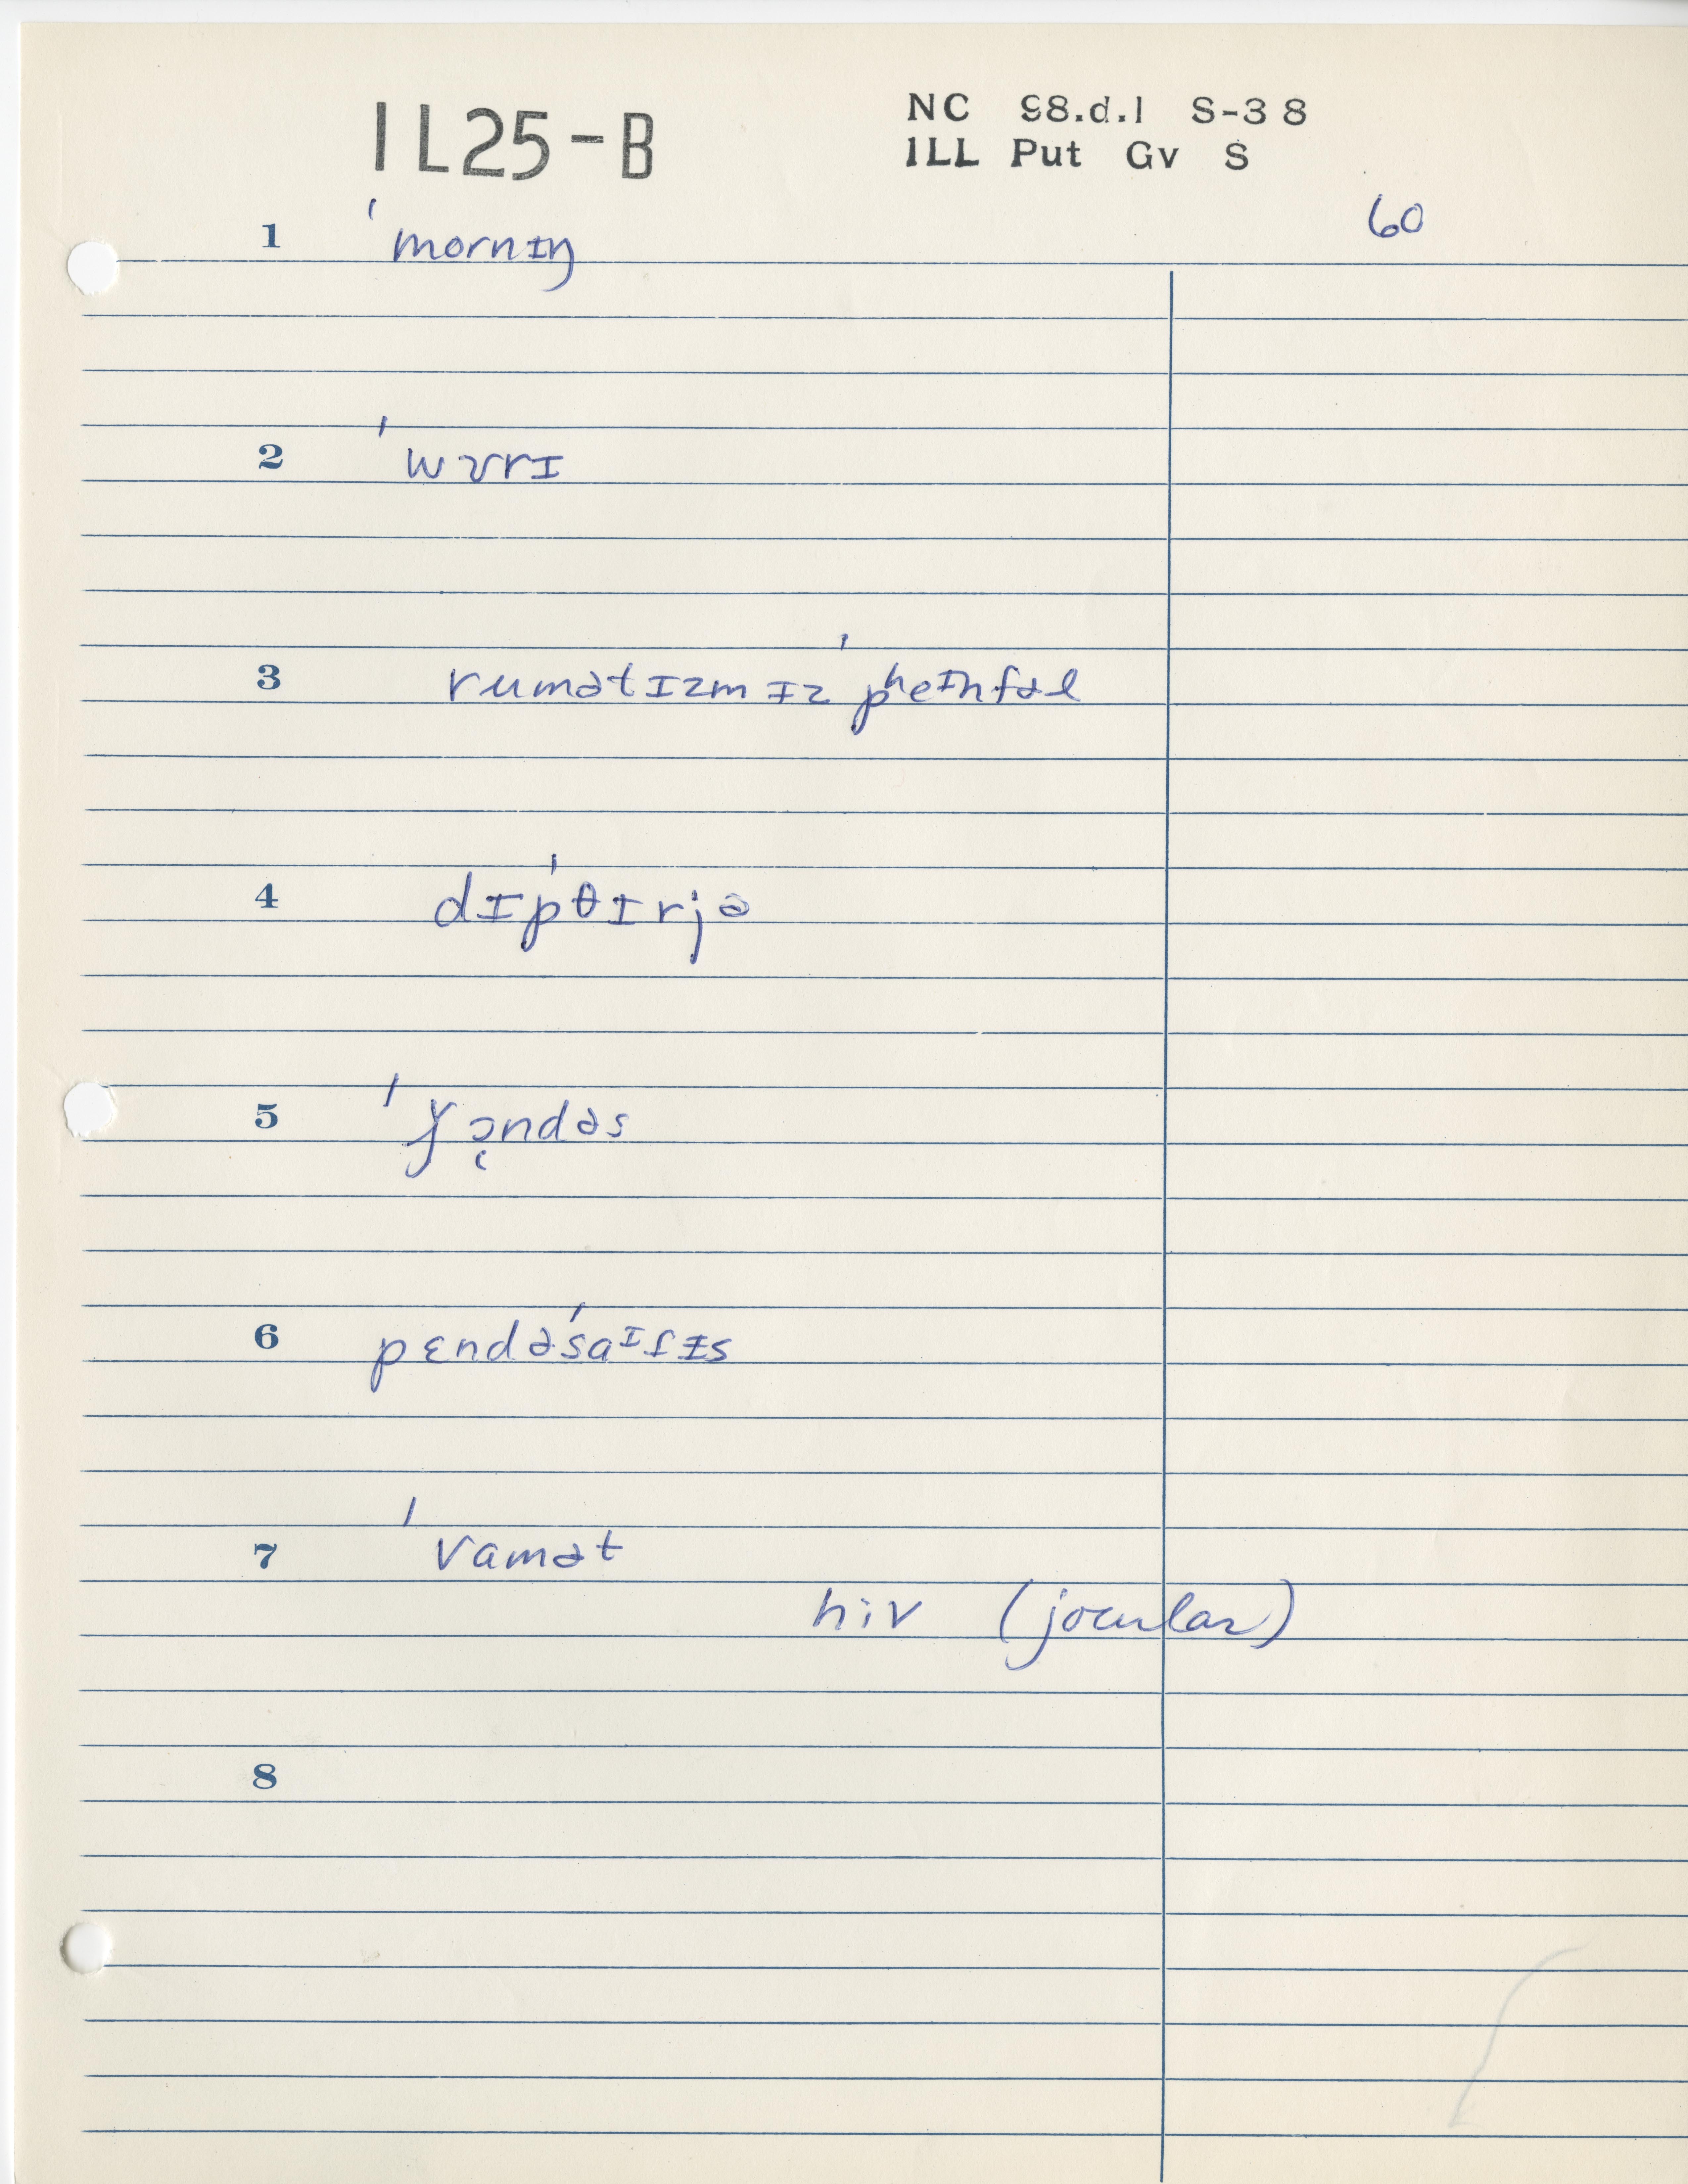 IL25-B
NC 98.d.1 S-38
ILL Put Gv S
60
1 ˈmornɪŋ
2 ˈwɤrɪ
3 rumətɪzm ɪz ˈpʰeɪnfəl
4 dɪpˈθɪrjə
5 ˈǰɔ̨ndəs
6 pɛndəˈsaɪɾɪs
7 ˈvamət
hiv (jocular)
8